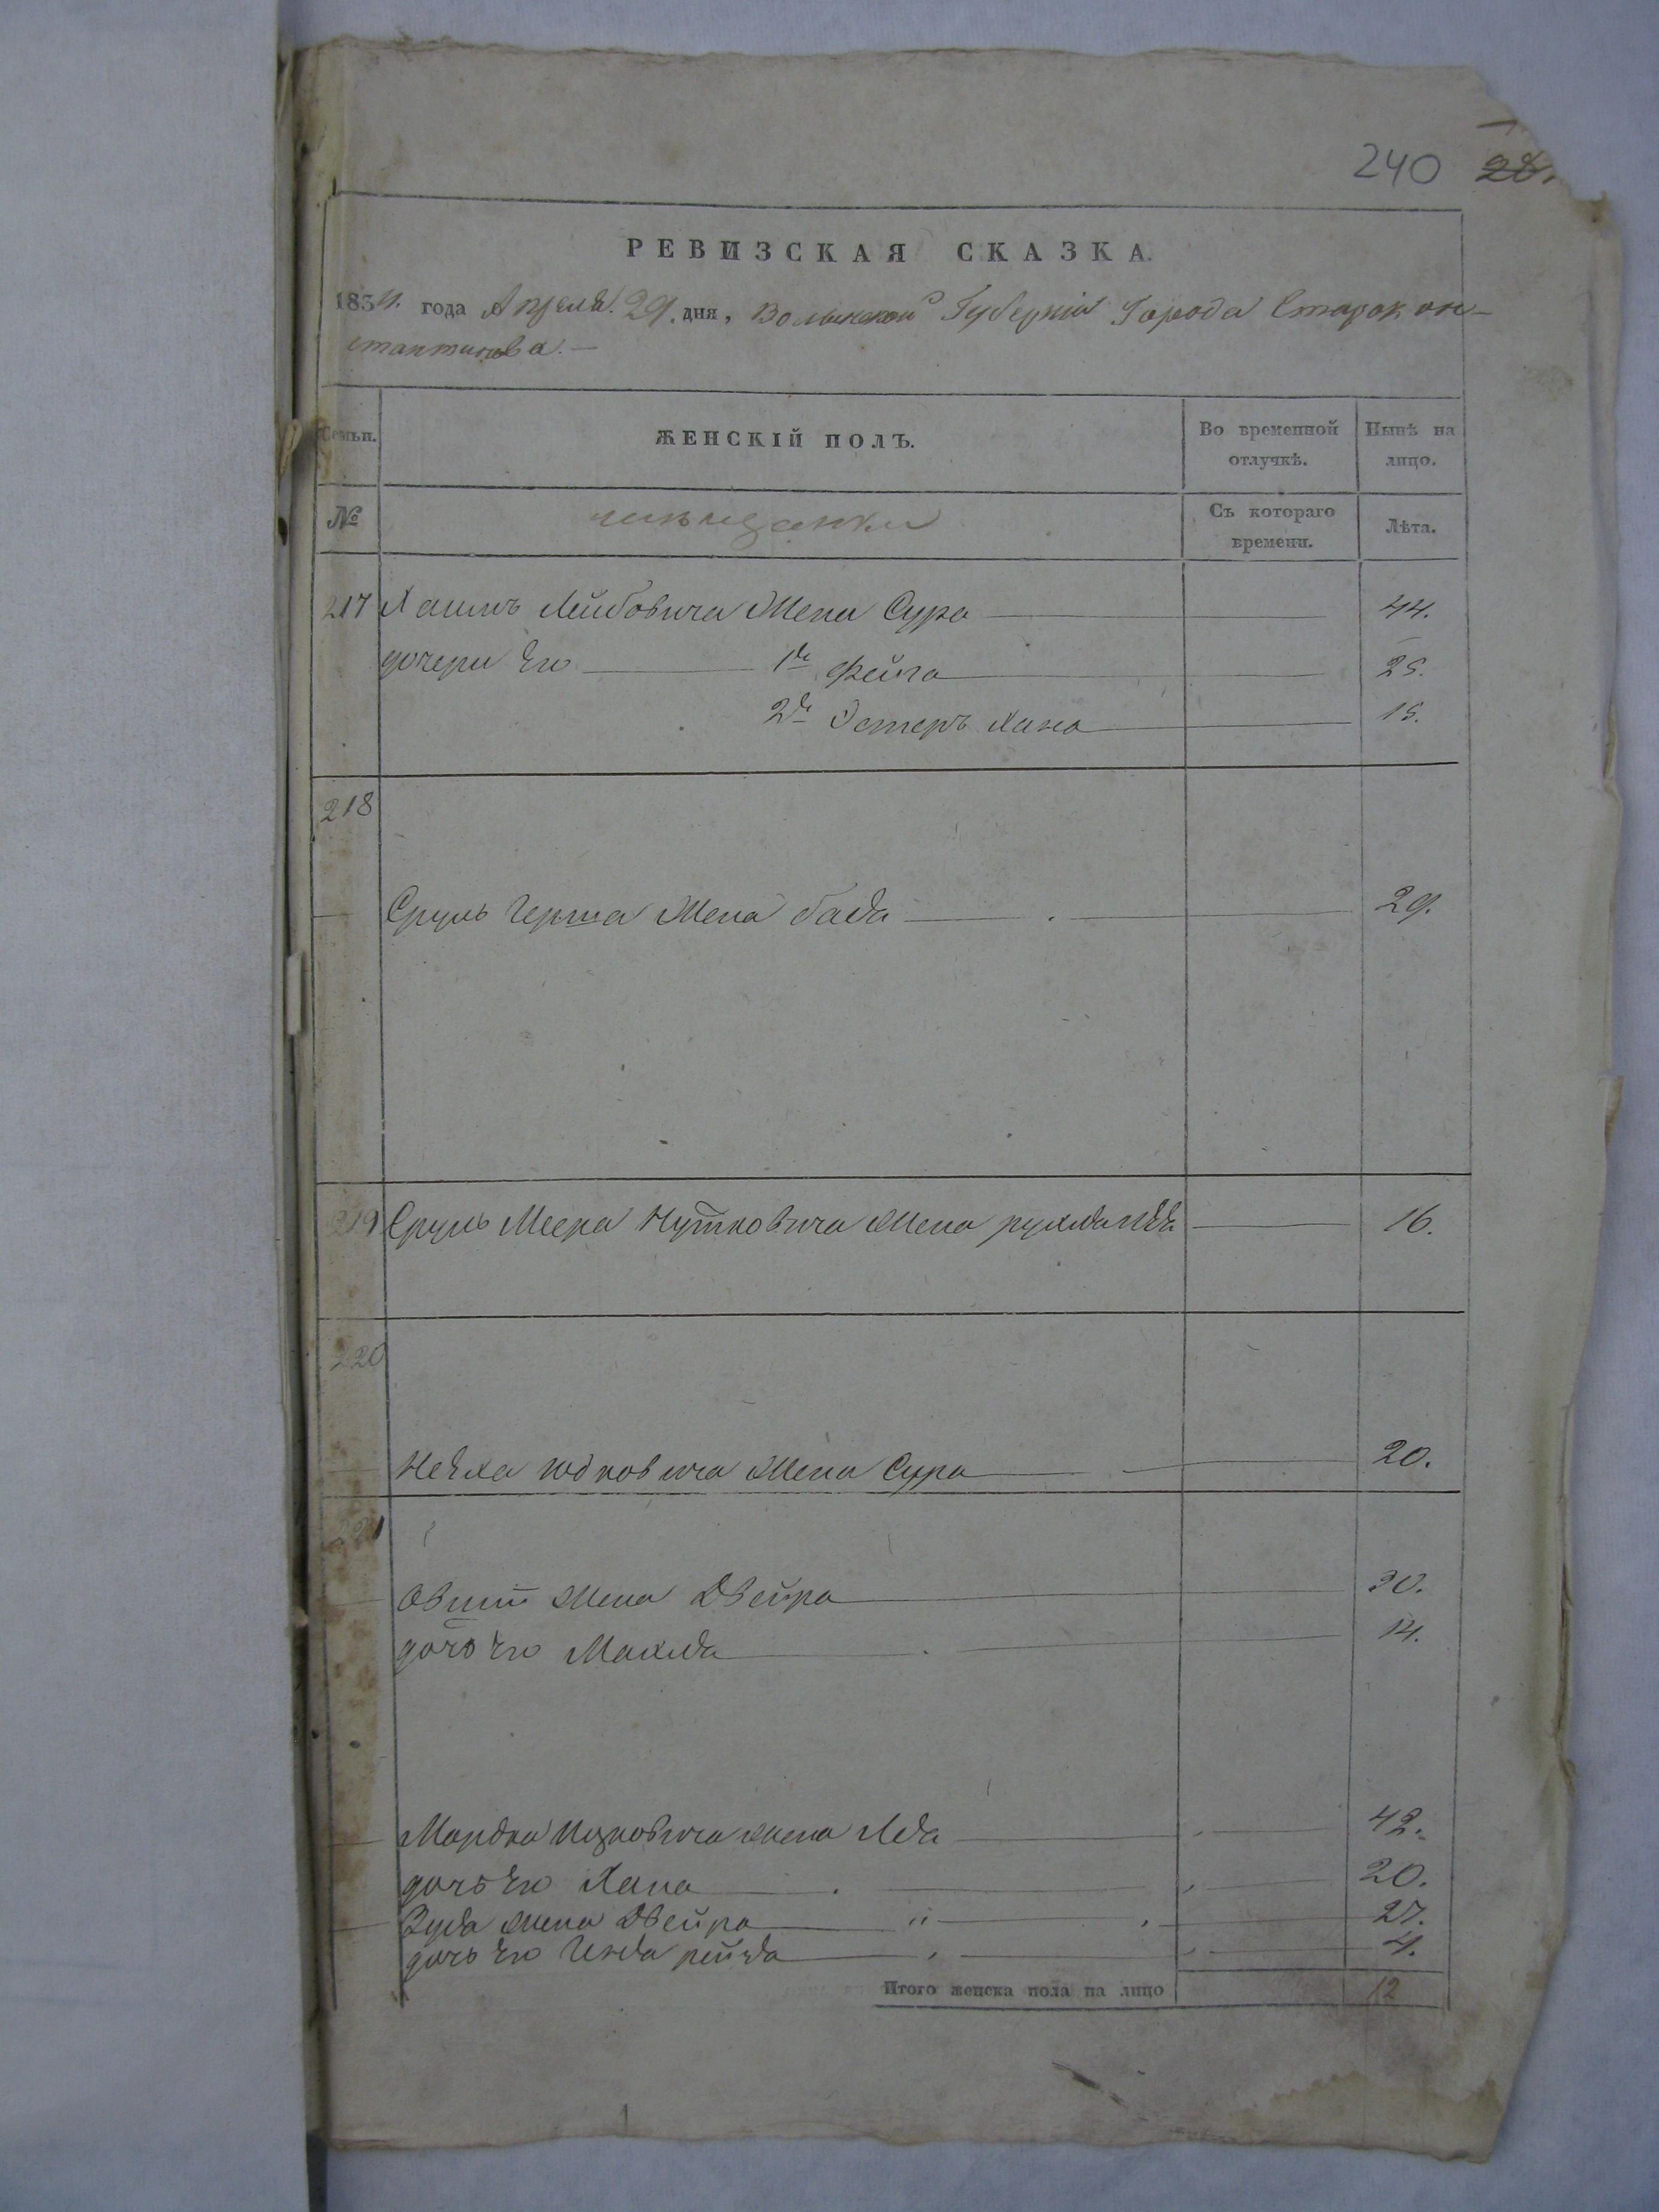 240 28.
РЕВИЗСКАЯ СКАЗКА.
1834. года Апреля. 29. дня, Волынской Губернiи Города Старокон-
стантинова.—
Семьи. ЖЕНСКIЙ ПОЛЪ. Во временной отлучкѣ. Нынѣ на лицо.
№ мѣщанки Съ котораго времени. Лѣта.
217 Хаимъ Лейбовича Жена Сура 44.
дочери Его 1я Фейга 25.
2я Эстеръ Хана 15.
218
Сруль Герша Жена бася 29.
219 Сруль Меера Нутковича Жена рухля 16.
220
Юдковича Жена Сура 20.
221
Жена Двейра 30.
дочь Его Махля 14.
Мордка Ицковича жена Лея 42.
дочь Его Хана 20.
Зуся Жена Двейра 27.
дочь Его Генда рейзя 4.
Итого женска пола на лицо 12